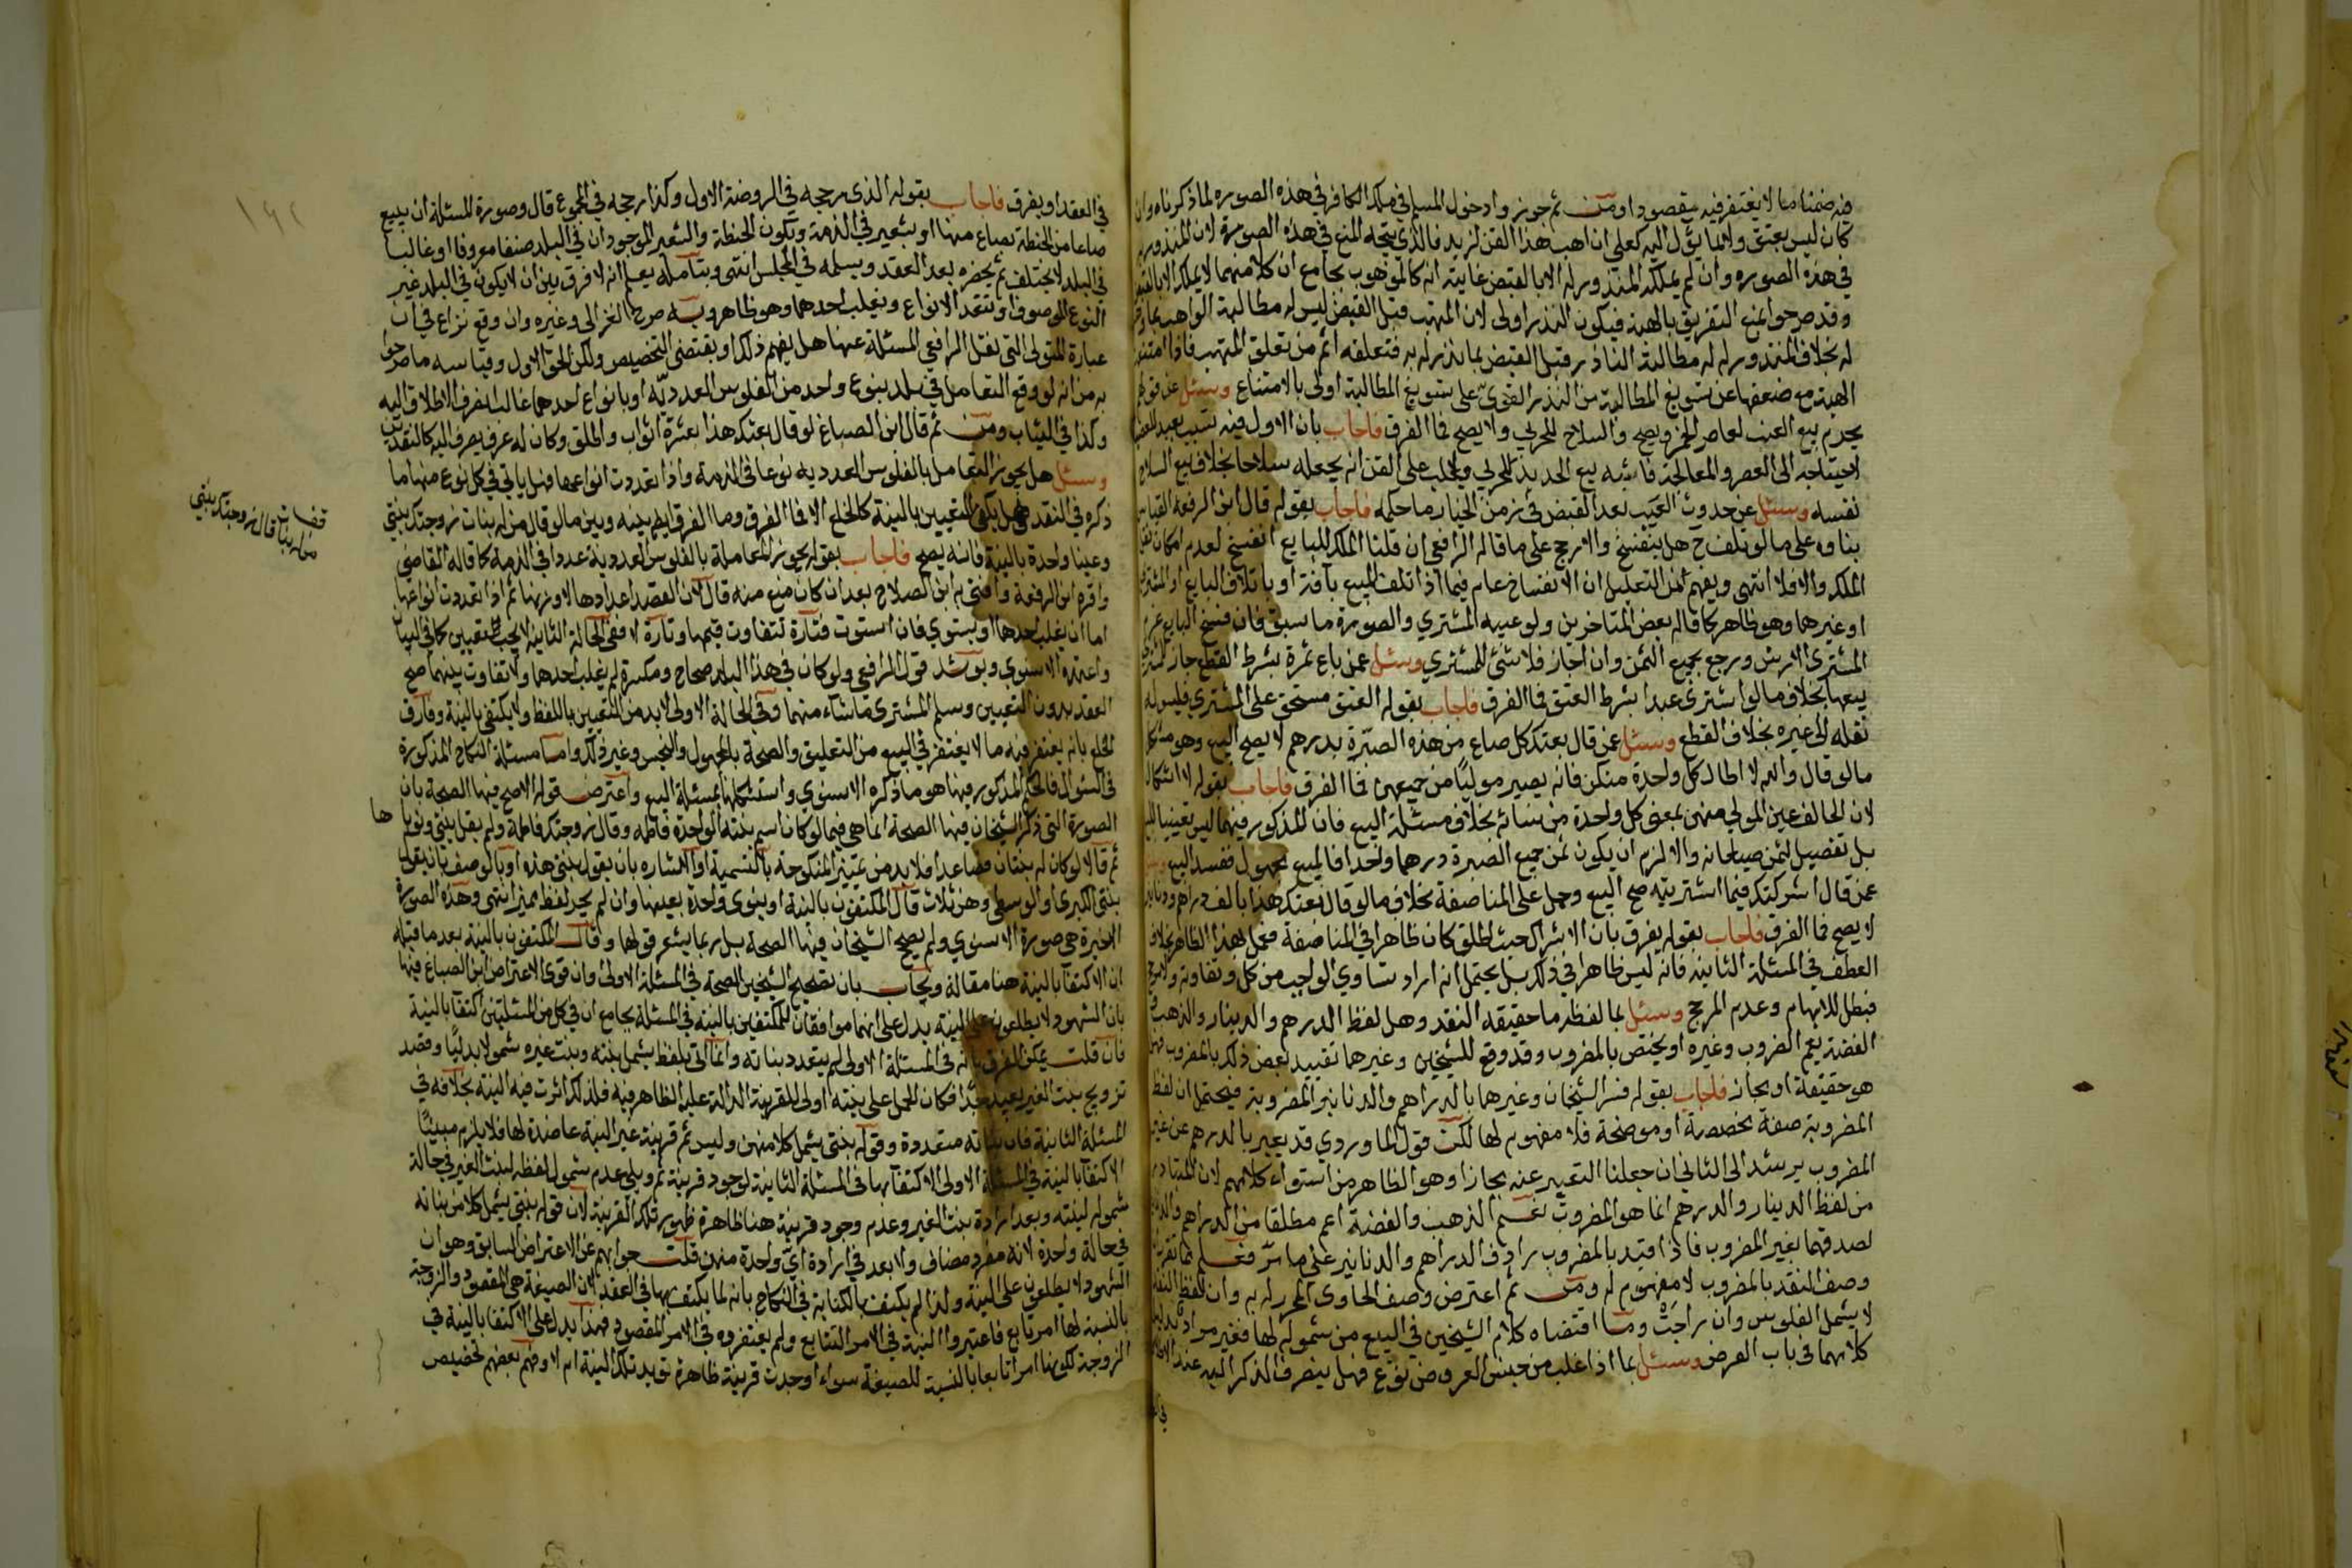 فيه ضمنا ما لا يغتفر فيه مقصودا ومن ثم جوزوا دخول المسلم في ملك الكافر في هذه الصوره لما ذكرناه وان
كان ليس بعتق وانما يؤل اليه كعلي ان اهب هذا القن لزيد فالذي يتجه المنع في هذه الصورة لان المنذور به
في هذه الصوره وان لم يملكه المنذور له الا بالقبض غايته انه كالموهوب بجامع ان كلا منهما لا يملك الا بالقبض
وقد صرحوا بمنع التفريق بالهبة فيكون النذر اولى لان المتهب قبل القبض ليس له مطالبة الواهب بما
له بخلاف المنذور له له مطالبة الناذر قبل القبض بما نذر له به فتعلقه اتم من تعلق المتهب فاذا امتنع
الهبة مع ضعفها عن تسويغ المطالبة من النذر القوي على تسويغ المطالبة اولى بالامتناع وسئل عن قولهم
يحرم بيع العنب لعاصر الخمر ويصح والسلاح للحربي ولا يصح فما الفرق فاجاب بان الاول فيه تسبب بعيد للمعصية
لاحتياجه الى العصر والمعالجة فاشبه بيع الحديد للحربي ويغلب على الظن انه يجعله سلاحا بخلاف بيع السلاح
نفسه وسئل عن حدوث العيب بعد القبض في زمن الخيار ما حكمه فاجاب بقوله قال ابن الرفعة القياس
بناوه على ما لو تلف ح هل ينفسخ والارجح على ما قاله الرافعي ان قلنا الملك للبايع انفسخ لعدم امكان نقل
الملك والا فلا انتهى ويفهم من التعليل ان الانفساخ عام فيما اذا تلف المبيع بآفة او باتلاف البايع او المشتري
او غيرهما وهو ظاهر كما قاله بعض المتاخرين ولو عيبه المشتري والصورة ما سبق فان فسخ البايع غرم
المشتري الارش ورجع بجميع الثمن وان اجاز فلا شئ للمشتري وسئل عمن باع ثمرة بشرط القطع جاز للمشتري
بيعها بخلاف ما لو اشترى عبدا بشرط العتق فما الفرق فاجاب بقوله العتق مستحق على المشتري فليس له
نقله الى غيره بخلاف القطع وسئل عمن قال بعتك كل صاع من هذه الصبرة بدرهم لا يصح البيع وهو مشكل
ما لو قال والله لا اطا كل واحدة منكن فانه يصير موليا من جميعهن فما الفرق فاجاب بقوله لا اشكال
لان الحالف عين المولي منهن بمعنى كل واحدة من نسائه بخلاف مسئلة البيع فان المذكور فيها ليس تعيينا للبيع
بل تفصيل لثمن صيعانه والا لزم ان يكون ثمن جميع الصبرة درهما واحدا فالمبيع مجهول ففسد البيع وسئل
عمن قال اشركتك فيما اشتريته صح البيع وحمل على المناصفة بخلاف ما لو قال بعتك هذا بالف دراهم ودنانير
لا يصح فما الفرق فاجاب بقوله يفرق بان الاشراك حيث اطلق كان ظاهرا في المناصفة فعمل بهذا الظاهر بخلاف
العطف في المسئلة الثانية فانه ليس ظاهرا في ذلك بل يحتمل انه اراد تساوي الواجب من كل وتفاوته ولا مرجح
فبطل للابهام وعدم المرجح وسئل بما لفظه ما حقيقه النقد وهل لفظ الدرهم والدينار والذهب
الفضة يعم المضروب وغيره او يختص بالمضروب وقد وقع للشيخين وغيرهما تقييد بعض ذلك بالمضروب فهل
هو حقيقة او مجاز فاجاب بقوله فسر الشيخان وغيرهما بالدراهم والدنانير المضروبة فيحتمل ان لفظ
المضروبة صفة مخصصة او موضحة فلا مفهوم لها لكن قول الماوردي قد يعبر بالدرهم عن غير
المضروب يرشد الى الثاني ان جعلنا التعبير عنه مجازا وهو الظاهر من استواء كلامهم لان المتبادر
من لفظ الدينار والدرهم انما هو المضروب نعم الذهب والفضة اعم مطلقا من الدراهم والدنانير
لصدقهما بغير المضروب فاذا قيد بالمضروب رادف الدراهم والدنانير على ما مر فعلم مما تقرر
وصف النقد بالمضروب لا مفهوم له ومن ثم اعترض وصف الحاوي المحرر له به وان لفظ النقد
لا يشمل الفلوس وان راجت وما اقتضاه كلام الشيخين في البيع من شموله لها فغير مراد بدليل
كلامهما في باب القرض وسئل بما اذا غلب من جنس العروض نوع فهل ينصرف الذكر اليه عند الاطلاق
في العقد او يفرق فاجاب بقوله الذي رجحه في الروضة الاول وكذا رجحه في المجموع قال وصورة المسئلة ان يبيع
صاعا من الحنطة بصاع منها او بشعير في الذمة وتكون الحنطة والشعير الموجودان في البلد صنفا معروفا او غالبا
في البلد لا يختلف ثم يحضره بعد العقد ويسلمه في المجلس انتهى وبتأمله يعلم انه لا فرق بين ان لا يكون في البلد غير
النوع الموصوف او تتعدد الانواع ويغلب احدهما وهو ظاهر وبه صرح الغزالي وغيره وان وقع نزاع في ان
عبارة المتولي التي نقل الرافعي المسئلة عنها هل يفهم ذلك او يقتضى التخصيص ولكن الحق الاول وقياسه ما صرحوا
به من انه لو وقع التعامل في بلد بنوع واحد من الفلوس العددية او بانواع احدهما غالب انصرف الاطلاق اليه
وكذا في الثياب ومن ثم قال ابن الصباغ لو قال بعتك هذا بعشرة اثواب واطلق وكان له عرف يصرف اليه كالنقدين
وسئل هل يجوز التعامل بالفلوس العدديه نوعا في الذمة واذا تعددت انواعها فهل ياتي في كل نوع منها ما
ذكره في النقد فهل يكفي التعيين بالنية كالخلع الا فما الفرق وما الفرق ايضا بينه وبين ما لو قال من له بنات زوجتك بنتي
وعينا واحدة بالنية فانه يصح فاجاب بقوله يجوز المعاملة بالفلوس العددية عددا في الذمة كما قاله القاضي
واقره ابن الرفعة وافتى به ابن الصلاح بعد ان كان منع منه قال لان القصد اعدادها لا وزنها ثم اذا تعددت انواعها
اما ان يغلب احدها او يستوي فان استوت فتارة تتفاوت قيمها وتارة لا ففي الحالة الثانية لا يجب التعيين كما في البيان
واعتمده الاسنوي ويؤيده قول الرافعي ولو كان في هذا البلد صحاح ومكسرة لم يغلب احدهما ولا تفاوت بينهما صح
العقد بدون التعيين وسلم المشتري ما شاء منهما وفي الحالة الاولى لا بد من التعيين باللفظ ولا يكتفي بالنية وفارق
الخلع بانه يغتفر فيه ما لا يغتفر في البيع من التعليق والصحة بالمجهول والنجس وغير ذلك واما مسئلة النكاح المذكورة
في السئوال فالحكم المذكور فيها هو ما ذكره الاسنوي واستشكلها بمسئلة البيع واعترض قوله الاصح فيها الصحة بان
الصورة التي ذكر الشيخان فيها الصحة انما هي فيما لو كان اسم بنته الواحدة فاطمه وقال زوجتك فاطمة ولم يقل بنتي ونوياها
ثم قالا لو كان له بنتان فصاعدا فلا بد من تمييز المنكوحة بالتسمية او الاشاره بان يقول بنتي هذه او بالوصف بان يقول
بنتي الكبرى او الوسطى وهن ثلاث قال المكتفون بالنية او ينوي واحدة بعينها وان لم يجر لفظ مميز انتهى وهذه الصورة
الاخيرة هي صورة الاسنوي ولم يصح الشيخان فيها الصحة بل ربما يشعر قولهما وقال المكتفون بالنية بعد ما قبله
ان الاكتفا بالنية هنا مقالة ويجاب بان تصحيح الشيخين الصحة في المسئلة الاولى وان قوى الاعتراض ابن الصباغ فيها
بان الشهود لا يطلعون على النية يدل على انهما موافقان للمكتفين بالنية في المسئلة بجامع ان في كل من المسئلتين اكتفا بالنية
فان قلت يمكن الفرق بانه في المسئلة الاولى لم يتعدد بناته وانما اتى بلفظ يشمل بنته وبنت غيره شمولا بدليا وقصد
تزويج بنت الغير بعيد جدا فكان الحمل على بنته اولى للقرينة الدالة عليه الظاهر فيه فلذلك اثرت فيه النية بخلافه في
المسئلة الثانية فان بناته متعددة وقوله بنتي يشمل كلا منهن وليس ثم قرينة غير النية عاضدة لها فلا يلزم من
الاكتفا بالنية في المسئلة الاولى الاكتفا بها في المسئلة الثانية لوجود قرينة ثم وهي عدم شمول لفظه لبنت الغير في حالة
شموله لبنته وبعد ارادة بنت الغير وعدم وجود قرينة هنا ظاهرة ظهور تلك القرينة لان قوله بنتي يشمل كلا من بناته
في حالة واحدة لانه مفرد مضاف ولا بعد في ارادة اي واحدة منهن قلت جوابهم عن الاعتراض السابق وهو ان
الشهود لا يطلعون على النية ولذا لم يكتف بالكناية في النكاح بانه لما يكتف بها في العقد لان الصيغة هي المقصود والزوجة
بالنسبة لها امر تابع فاعتبروا النية في الامر التتابع ولم يعتبروه في الامر المقصود فهذا يدل على الاكتفا بالنية في
الزوجة لكونها امرا تابعا بالنسبة للصيغة سواء اوجدت قرينة ظاهرة تؤيد تلك النية ام لا وفهم بعضهم تخصيص
من له بنات قال زوجتك بنتي
ها
١٩٢